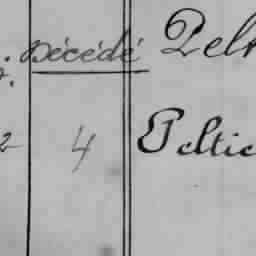 Décédé Pelt
2 4 Peltie